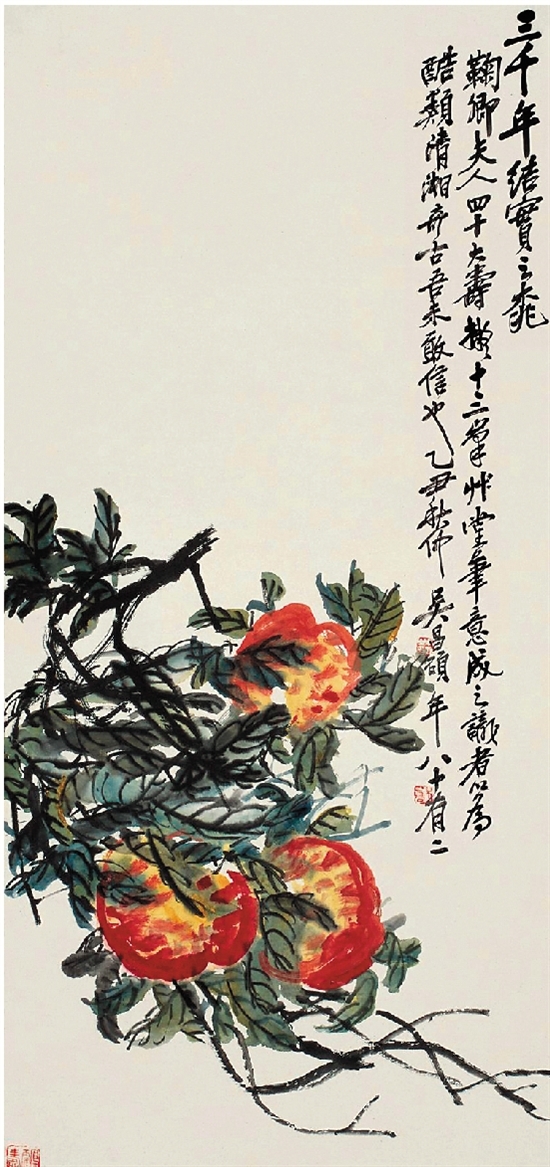 三千年結實之桃
鞠卿夫人四十大壽擬十二筆艸堂筆意成之議者以為
酷類清湘奇古吾未敢信也乙丑秋仲
吳昌碩年八十有二